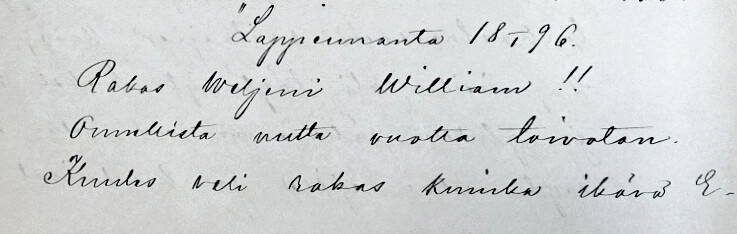 "Lappeenranta 18 I 96.
Rakas Weljeni William !!
Onnellista uutta vuotta toivotan.
Kuules veli rakas kuinka ikävä E-